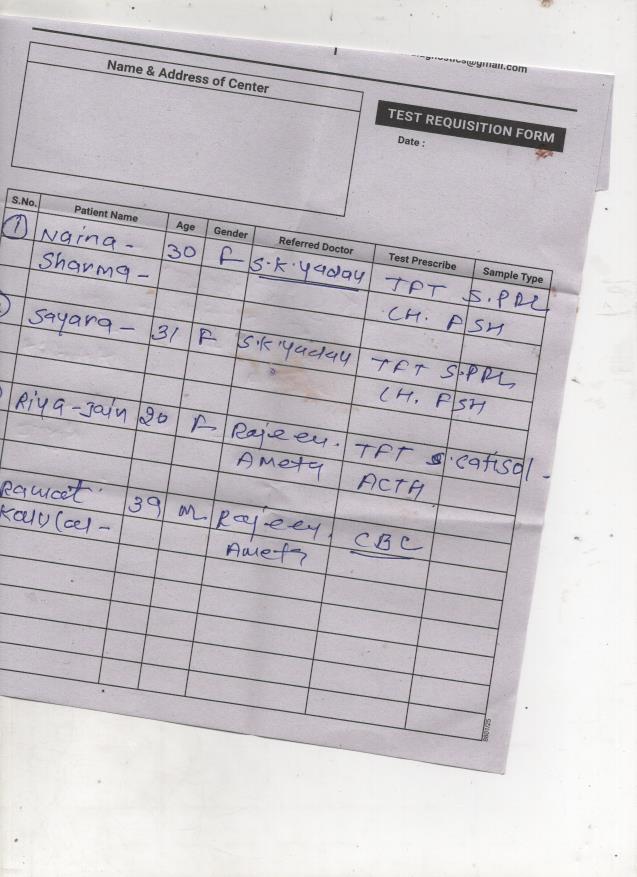 diagnostics@gmail.com
Name & Address of Center
TEST REQUISITION FORM
Date :
S.No. Patient Name Age Gender Referred Doctor Test Prescribe Sample Type
1 Naina - 30 F S.K. Yadav TFT S.PRL
Sharma - LH. FSH
Sayara - 31 F S.K Yadav TFT S.PRL
LH. FSH
Riya - Jain 20 F Rajeev. TFT S. Catisol -
Ameta ACTH
Rawat 39 M Rajeev. CBC
Kalulal - Ameta